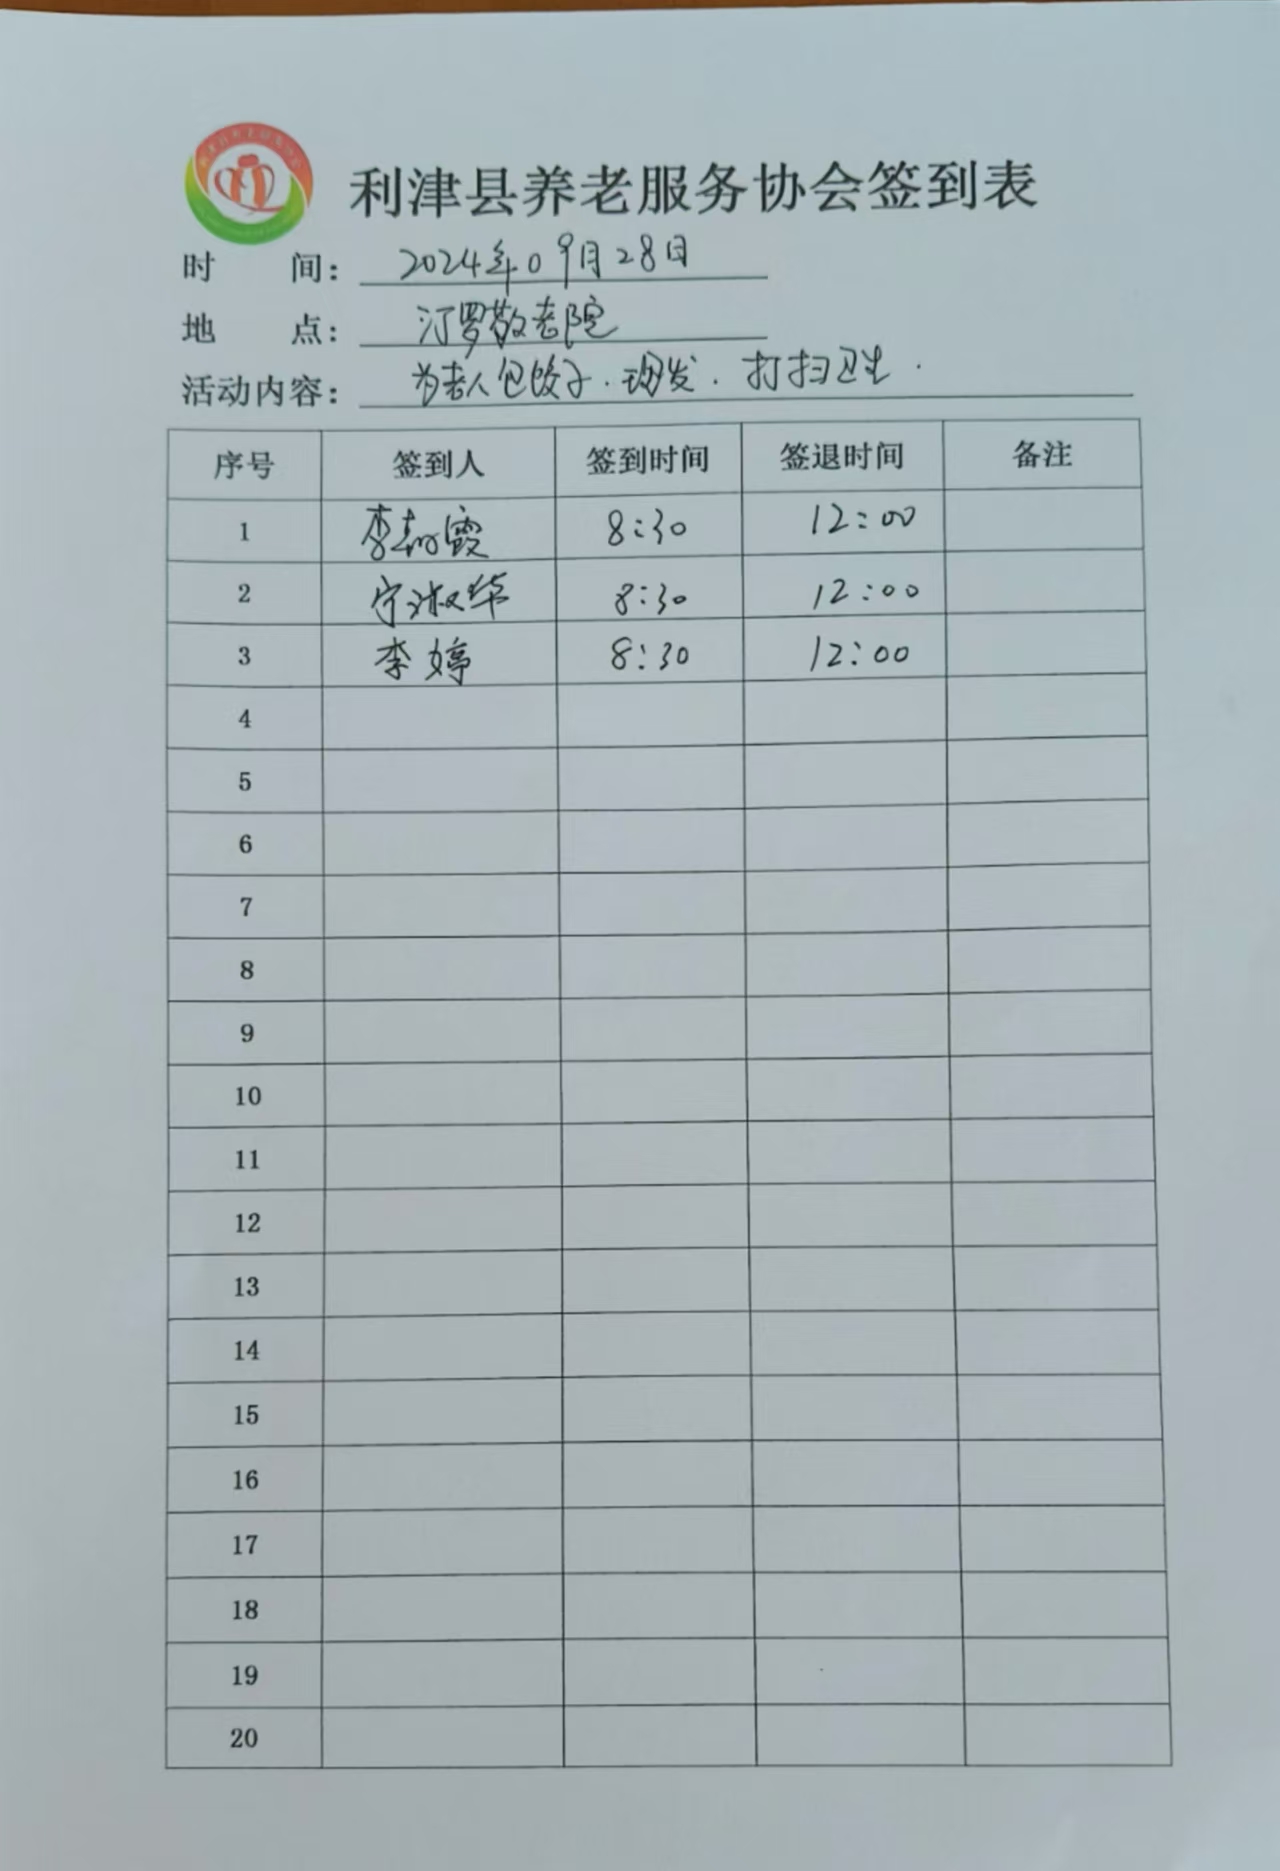 利津县养老服务协会签到表
时 间： 2024年09月28日
地 点： 汀罗敬老院
活动内容： 为老人包饺子. 理发. 打扫卫生.
序号 签到人 签到时间 签退时间 备注
1 李 霞 8:30 12:00
2 宁淑华 8:30 12:00
3 李婷 8:30 12:00
4
5
6
7
8
9
10
11
12
13
14
15
16
17
18
19
20